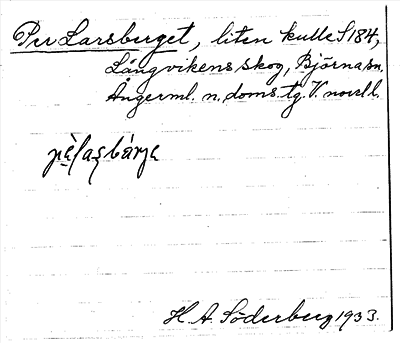 Per Larsberget, liten kulle S 184,
Långvikens skog, Björna sn.
Ångerml. n. doms. tg. V. novell.
H. A. Söderberg 1933.